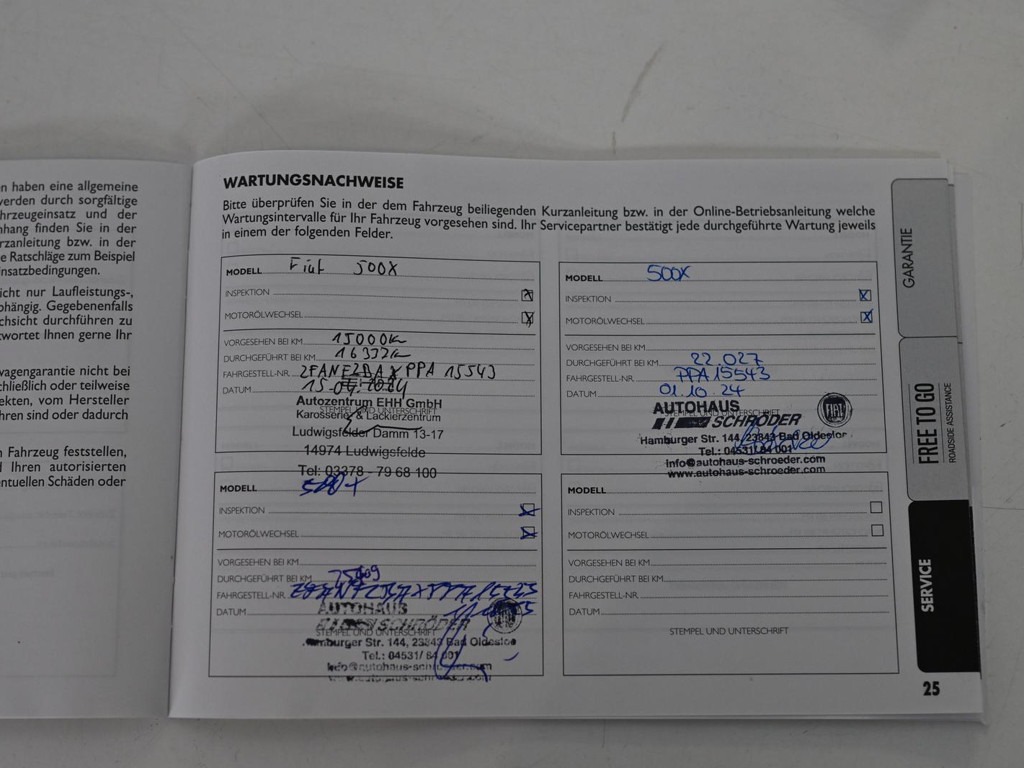 n haben eine allgemeine
werden durch sorgfältige
hrzeugeinsatz und der
nhang finden Sie in der
rzanleitung bzw. in der
e Ratschläge zum Beispiel
nsatzbedingungen.
icht nur Laufleistungs-,
bhängig. Gegebenenfalls
chsicht durchführen zu
twortet Ihnen gerne Ihr
wagengarantie nicht bei
chließlich oder teilweise
ekten, vom Hersteller
hren sind oder dadurch
Fahrzeug feststellen,
Ihren autorisierten
entuellen Schäden oder
WARTUNGSNACHWEISE
Bitte überprüfen Sie in der dem Fahrzeug beiliegenden Kurzanleitung bzw. in der Online-Betriebsanleitung welche
Wartungsintervalle für Ihr Fahrzeug vorgesehen sind. Ihr Servicepartner bestätigt jede durchgeführte Wartung jeweils
in einem der folgenden Felder.
MODELL Fiat 500X
INSPEKTION x
MOTORÖLWECHSEL x
VORGESEHEN BEI KM 15000km
DURCHGEFÜHRT BEI KM 16332km
FAHRGESTELL-NR. PPA 15543
DATUM 15.
Autozentrum EHH GmbH
Karosserie & Lackierzentrum
STEMPEL UND UNTERSCHRIFT
Ludwigsfelder Damm 13-17
14974 Ludwigsfelde
Tel: 03378 - 79 68 100
MODELL 500X
INSPEKTION x
MOTORÖLWECHSEL x
VORGESEHEN BEI KM
DURCHGEFÜHRT BEI KM 22.027
FAHRGESTELL-NR. PPA15543
DATUM 01.10.24
AUTOHAUS
SCHRÖDER
STEMPEL UND UNTERSCHRIFT
FIAT
Hamburger Str. 144, 23843 Bad Oldesloe
Tel.: 04531/ 84 001
info@autohaus-schroeder.com
www.autohaus-schroeder.com
MODELL
INSPEKTION x
MOTORÖLWECHSEL x
VORGESEHEN BEI KM
DURCHGEFÜHRT BEI KM
FAHRGESTELL-NR.
DATUM
AUTOHAUS
SCHRÖDER
STEMPEL UND UNTERSCHRIFT
Hamburger Str. 144, 23843 Bad Oldesloe
Tel.: 04531/ 84 001
info@autohaus-schroeder.com
www.autohaus-schroeder.com
MODELL
INSPEKTION
MOTORÖLWECHSEL
VORGESEHEN BEI KM
DURCHGEFÜHRT BEI KM
FAHRGESTELL-NR.
DATUM
STEMPEL UND UNTERSCHRIFT
GARANTIE
FREE TO GO
ROADSIDE ASSISTANCE
SERVICE
25